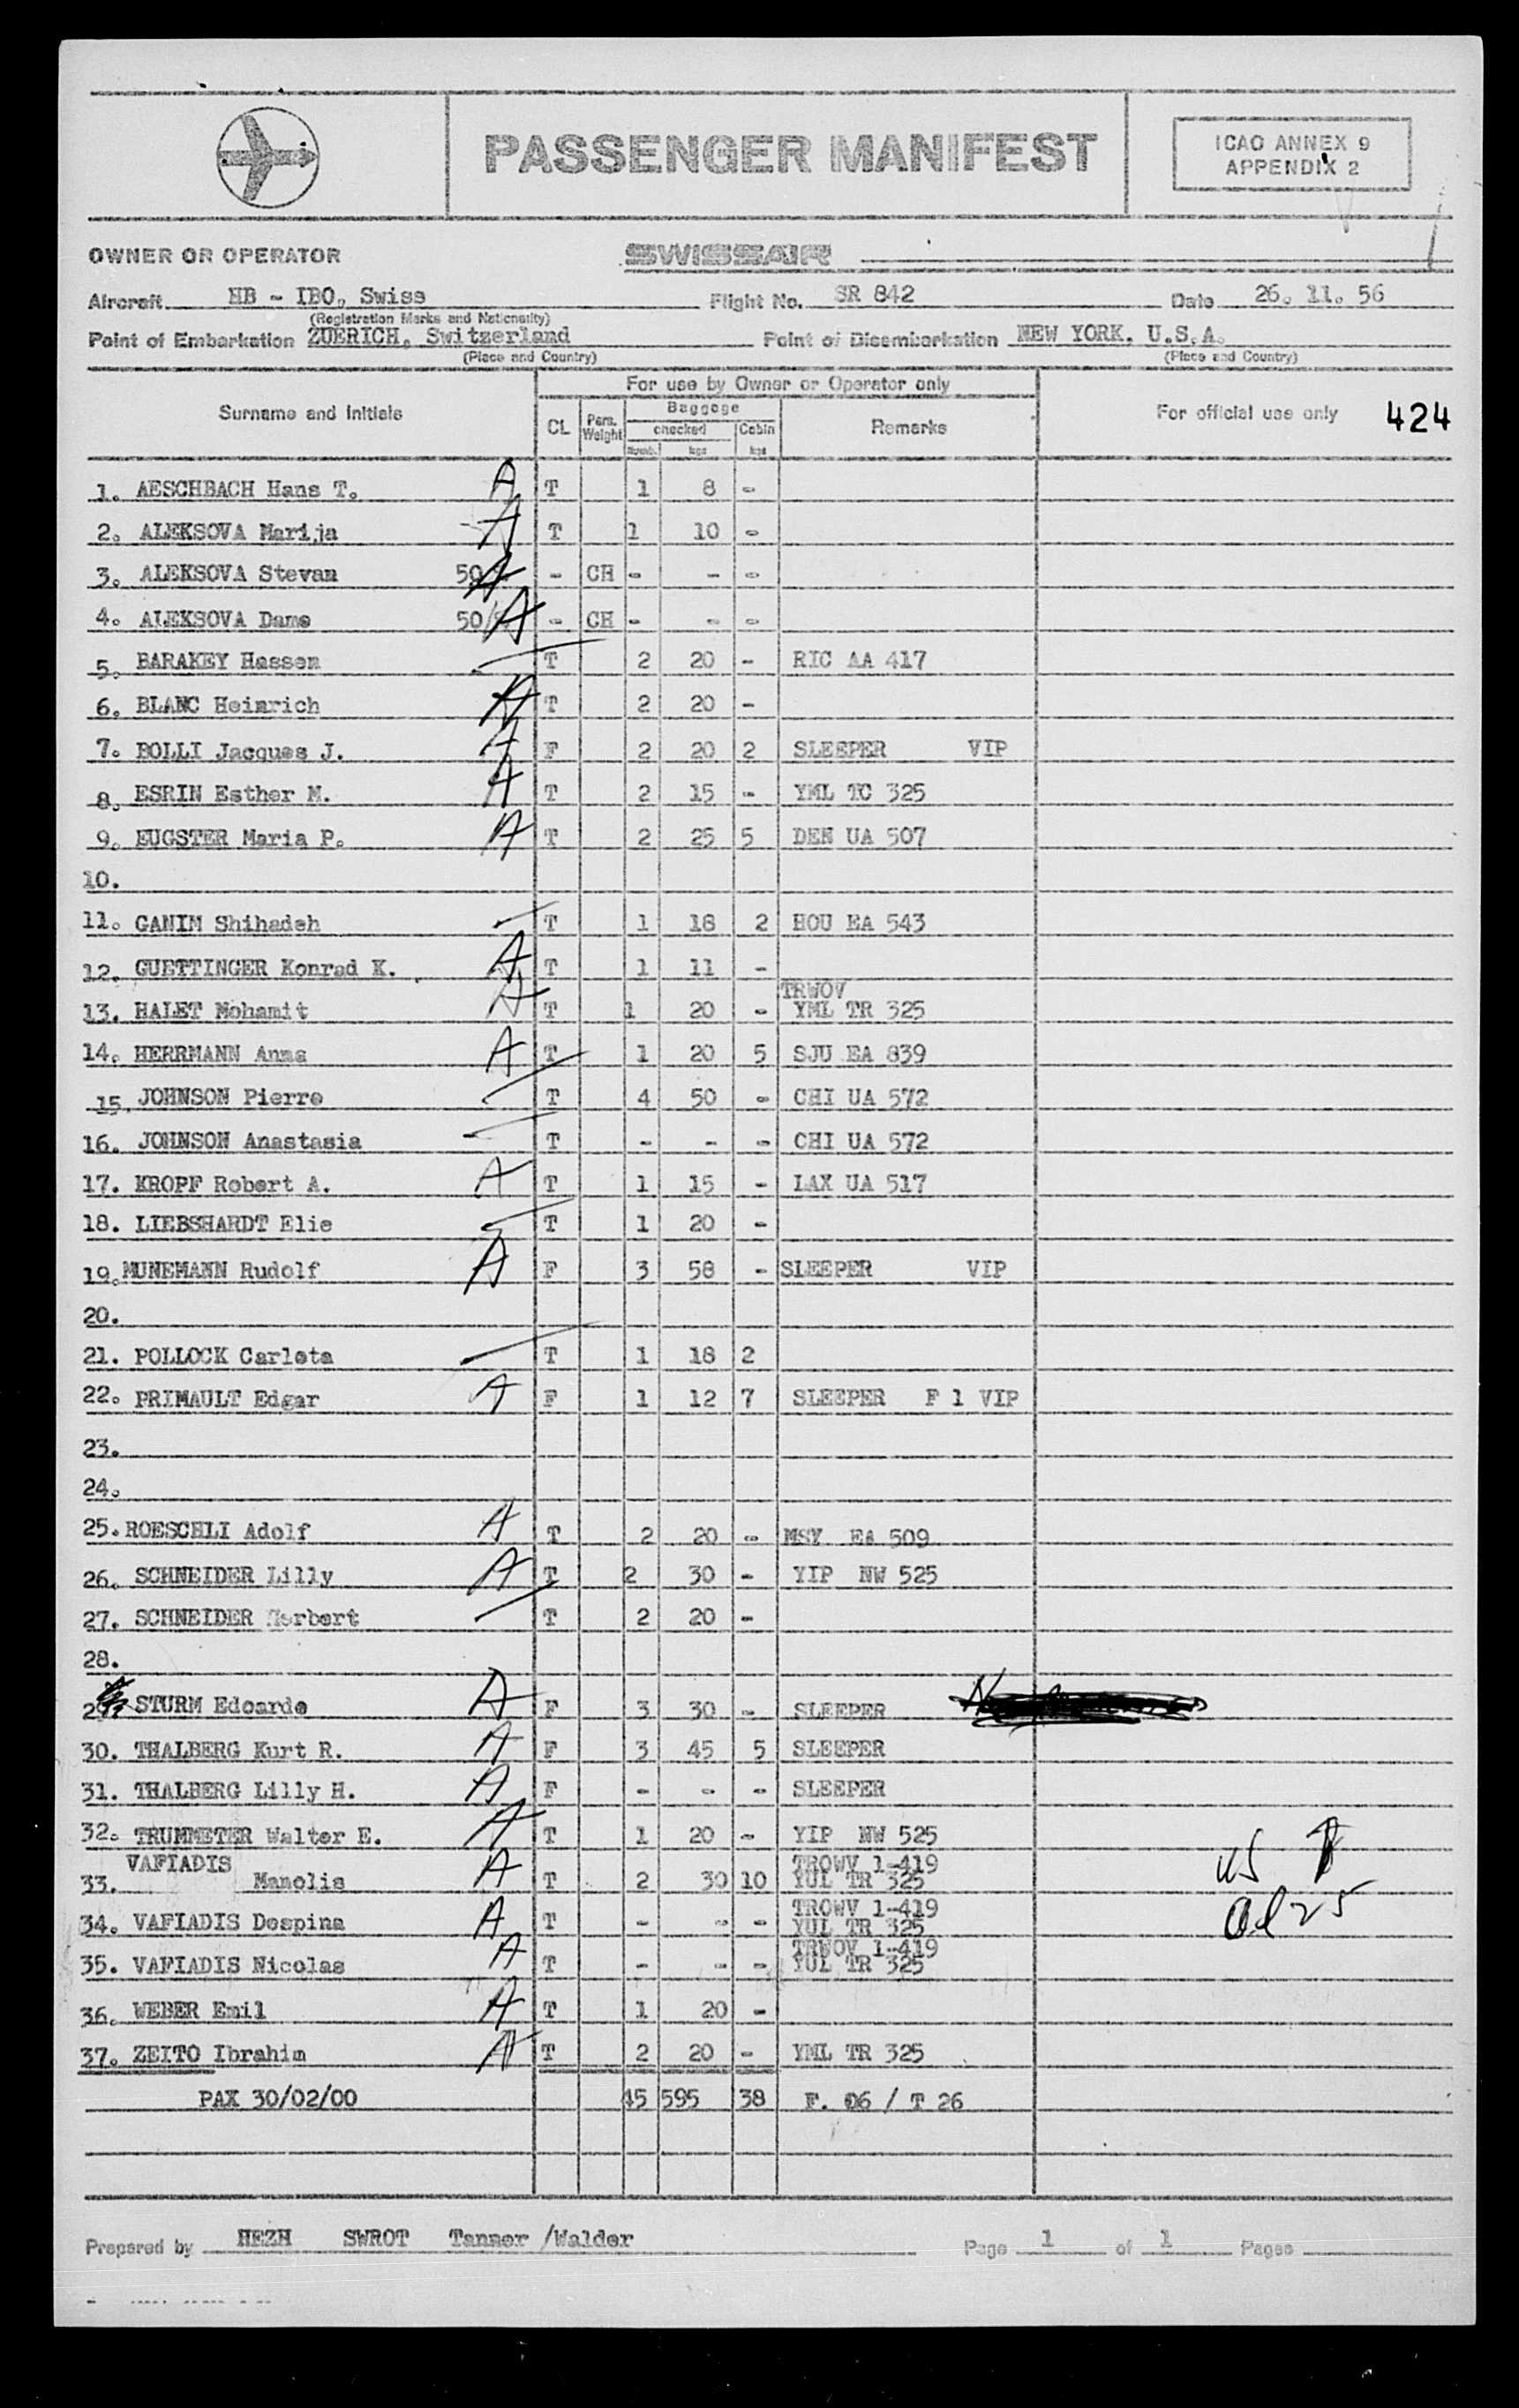 PASSENGER MANIFEST
ICAO ANNEX 9
APPENDIX 2
OWNER OR OPERATOR SWISSAIR
Aircraft HB - IBO, Swiss Flight No. SR 842 Date 26. 11. 56
(Registration Marks and Nationality)
Point of Embarkation ZUERICH, Switzerland Point of Disembarkation NEW YORK, U.S.A.
(Place and Country) (Place and Country)
For use by Owner or Operator only
Surname and Initials CL Pers. Weight Baggage checked Numb. kgs Cabin kgs Remarks For official use only 424
1. AESCHBACH Hans T. A T 1 8 -
2. ALEKSOVA Marija A T 1 10 -
3. ALEKSOVA Stevan 50 A - CH - - -
4. ALEKSOVA Dame 50/ A - CH - - -
5. BARAKEY Hassen T 2 20 - RIC AA 417
6. BLANC Heinrich A T 2 20 -
7. BOLLI Jacques J. A F 2 20 2 SLEEPER VIP
8. ESRIN Esther M. A T 2 15 - YML TC 325
9. EUGSTER Maria P. A T 2 25 5 DEN UA 507
10.
11. GANIM Shihadeh T 1 18 2 HOU EA 543
12. GUETTINGER Konrad K. A T 1 11 -
TRWOV
13. HALET Mohamit A T 1 20 - YML TR 325
14. HERRMANN Anna A T 1 20 5 SJU EA 839
15. JOHNSON Pierre T 4 50 - CHI UA 572
16. JOHNSON Anastasia T - - - CHI UA 572
17. KROPF Robert A. A T 1 15 - LAX UA 517
18. LIEBSHARDT Elie T 1 20 -
19. MUNEMANN Rudolf A F 3 58 - SLEEPER VIP
20.
21. POLLOCK Carleta T 1 18 2
22. PRIMAULT Edgar A F 1 12 7 SLEEPER F 1 VIP
23.
24.
25. ROESCHLI Adolf A T 2 20 - MSY EA 509
26. SCHNEIDER Lilly A T 2 30 - YIP NW 525
27. SCHNEIDER Herbert T 2 20 -
28.
29. STURM Edoardo A F 3 30 - SLEEPER
30. THALBERG Kurt R. A F 3 45 5 SLEEPER
31. THALBERG Lilly H. A F - - - SLEEPER
32. TRUMMETER Walter E. A T 1 20 - YIP NW 525
VAFIADIS TROWV 1-419
33. Manolis A T 2 30 10 YUL TR 325
TROWV 1-419
34. VAFIADIS Despina A T - - - YUL TR 325
TRWOV 1-419
35. VAFIADIS Nicolas A T - - - YUL TR 325
36. WEBER Emil A T 1 20 -
37. ZEITO Ibrahim A T 2 20 - YML TR 325
PAX 30/02/00 45 595 38 F. 06 / T 26
Prepared by HEZH SWROT Tanner /Walder Page 1 of 1 Pages